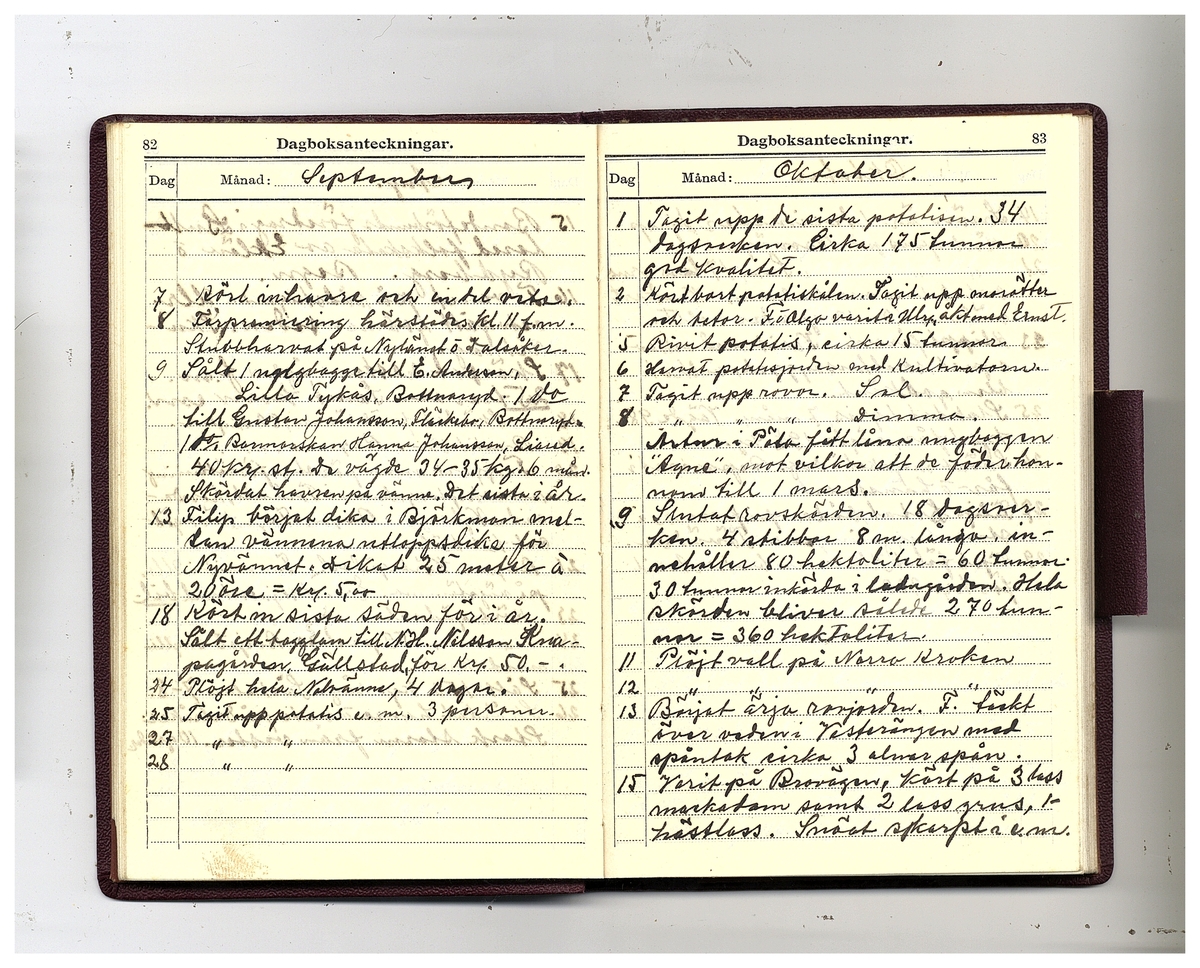 82
Dagboksanteckningar.
Dag
Månad: September
7 Kört in havre och en del vete.
8 Fårpremiering härstädes kl. 11 f.m.
Stubbharvat på Nylandet o Dalsåker.
9 Sålt 1 ungbagge till E. Anderson,
Lilla Tykås, Bottnaryd. 1 do
till Gustav Johansson, Fläskebo, Bottnaryd.
1 do, Barnmorskan Hanna Johansson, Liared.
40 kr. st. De vägde 24–35 kg. 6 mån.
Skördat havren på vänne. Det sista i år.
13 Filip börjat dika i Björkman mel-
lan vännena utloppsdike för
Nyvännet. Dikat 25 meter à
20 öre = Kr. 5,00
18 Kört in sista säden för i år.
Sålt ett bagglam till N.H. Nelsson Kna-
pagården, Gällstad, för Kr. 50.–.
24 Plöjt hela vänne, 4 dagar.
25 Tagit upp potatis e. m. 3 personer.
27 " "
28 " "
83
Dagboksanteckningar.
Dag
Månad: Oktober.
1 Tagit upp de sista potatisen. 34
dagsverken. Cirka 175 tunnor
god kvalitet.
2 Kört bort potatiskålen. Tagit upp morötter
och betor. F. o Olga varit a Ulrh. åkt med Ernst.
5 Rivit potatis, cirka 15 tunnor.
6 Harvat potatisjorden med Kultivatorn.
7 Tagit upp rovor. Sol.
8 " " " Dimma.
Artur i Påla fått låna ungbaggen
"Agne", mot vilkor att de föder hon-
nom till 1 mars.
9 Slutat rovskörden. 18 dagsver-
ken. 4 stibbor 8 m. långa. in-
nehåller 80 hektoliter = 60 tunnor.
30 tunnor inkörda i ladugården. Hela
skörden bliver således 270 tun-
nor = 360 hektoliter.
11 Plöjt vall på Norra Kroken
12 " " " "
13 Börjat ärja rovjorden. F. täckt
över veden i Västerängen med
spåntak cirka 3 alnar spån.
15 Varit på Brovägen, Kört på 3 lass
mackadam samt 2 lass grus, 1-
hästlass. Snöat skarpt i e. m.